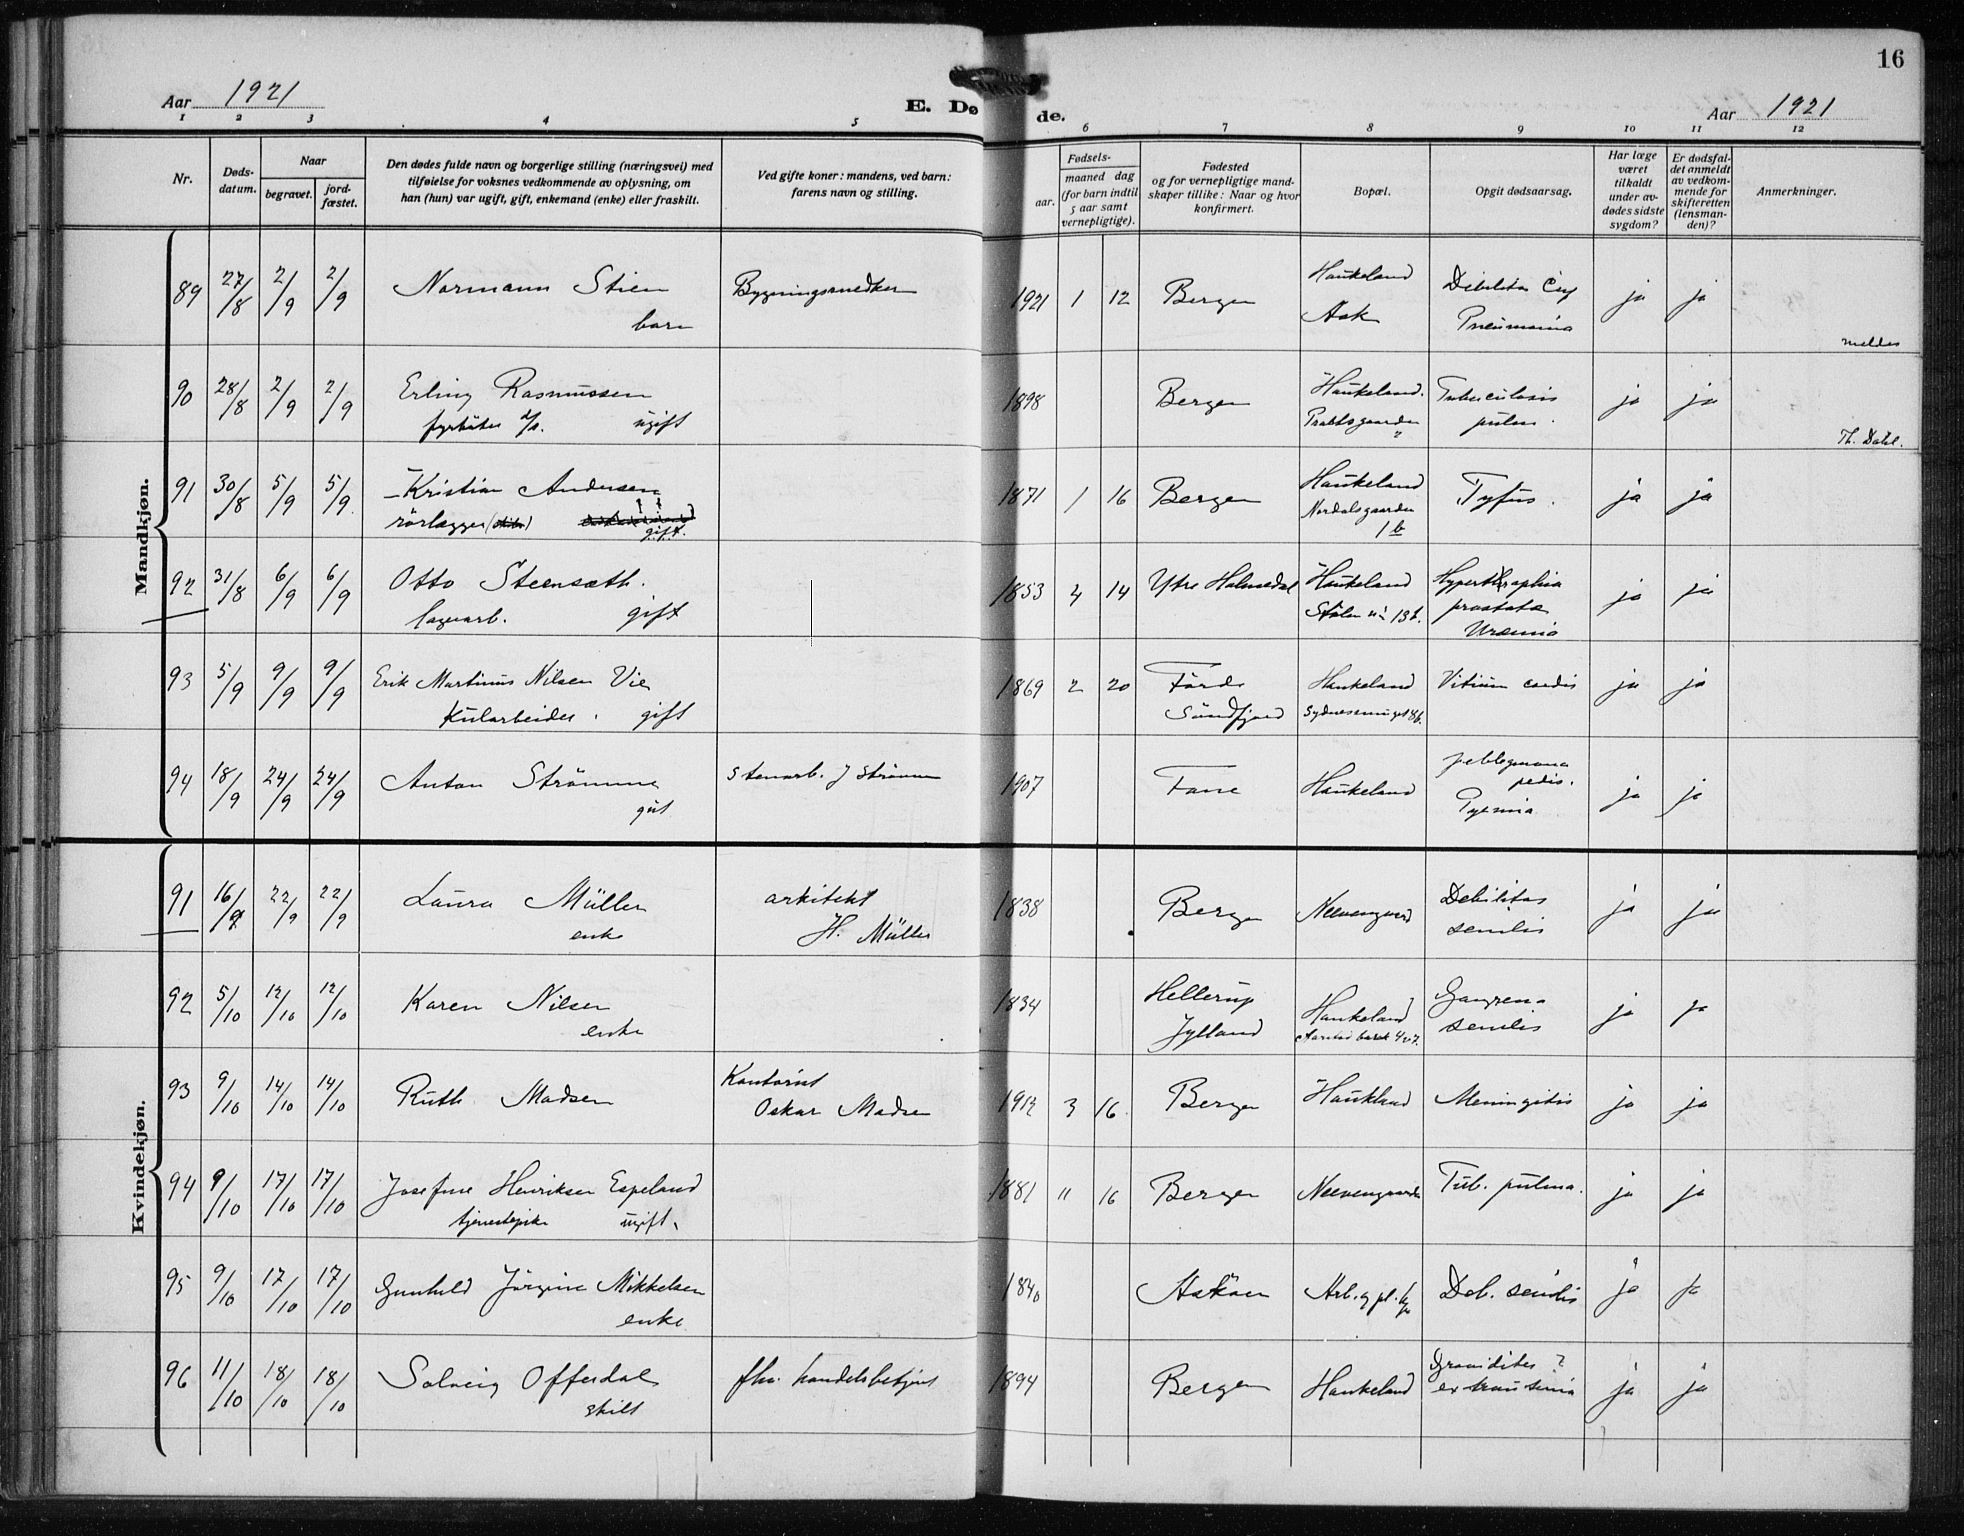 16
Aar 1921
E. Døde.
Aar 1921
1 2 3 4 5 6 7 8 9 10 11 12
Nr.
Døds-
datum.
Naar
begravet.
jord-
fæstet.
Den dødes fulde navn og borgerlige stilling (næringsvei) med
tilføielse for voksnes vedkommende av oplysning, om
han (hun) var ugift, gift, enkemand (enke) eller fraskilt.
Ved gifte koner: mandens, ved barn:
farens navn og stilling.
Fødsels-
aar.
maaned dag
(for barn indtil
5 aar samt
vernepligtige).
Fødested
og for vernepligtige mand-
skaper tillike: Naar og hvor
konfirmert.
Bopæl.
Opgit dødsaarsag.
Har læge
været
tilkaldt
under av-
dødes sidste
sygdom?
Er dødsfal-
det anmeldt
av vedkom-
mende for
skifteretten
(lensman-
den)?
Anmerkninger.
Mandkjøn.
89 27/8 2/9 2/9 Normann Stien
barn
1921 1 12 Bergen Haukeland
Ask
Debilitas
Pneumonia
ja ja
meldes
90 28/8 2/9 2/9 Erling Rasmussen
fyrbøter ugift
1898 Bergen Haukeland.
Tuberculosis
pulm.
ja ja
Th. Dahl.
91 30/8 5/9 5/9 Kristian Andersen
rörlægger
gift.
1871 1 16 Bergen Haukeland
Nordalsgaarden
1 b
Tyfus. ja ja
92 31/8 6/9 6/9 Otto Steensæth.
gift
1853 14 Ytre Holmedal Haukeland
13b.
prostata
Uræmia
ja ja
93 5/9 9/9 9/9 Erik Martinus Nilsen Vie
Kularbeider. gift
1869 2 20 Förde
Söndfjord
Haukeland
Vitium cordis ja ja
94 18/9 24/9 24/9 Anton Strömme
gut
Stenarb. J Strömme
1907 Fane Haukeland
pedis.
Pyemia
ja ja
Kvindekjøn.
91 16/9 22/9 22/9 Laura Müller
enke
arkitekt
H. Müller
1838 Bergen Neevengaard Debilitas
senilis
ja ja
92 5/10 12/10 12/10 Karen Nilsen
enke
1834 Hellerup
Jylland
Haukeland
Gangrena
senilis
ja ja
93 9/10 14/10 14/10 Ruth Madsen
Kontorist
Oskar Madsen
1912 3 16. Bergen Haukland Meningitis ja ja
94 9/10 17/10 17/10 Josefine Henriksen Espeland
tjenestepike ugift.
1881 11 16 Bergen Neevengaarden Tub. pulmn. ja ja
95 9/10 17/10 17/10 Gunhild Jörgine Mikkelsen
enke
1840 Asköen Deb. senilis ja ja
96 11/10 18/10 18/10 Solveig Offerdal
skilt
fhv. handelsbetjent
1894 Bergen Haukeland Graviditas ?
extrauterina
ja ja